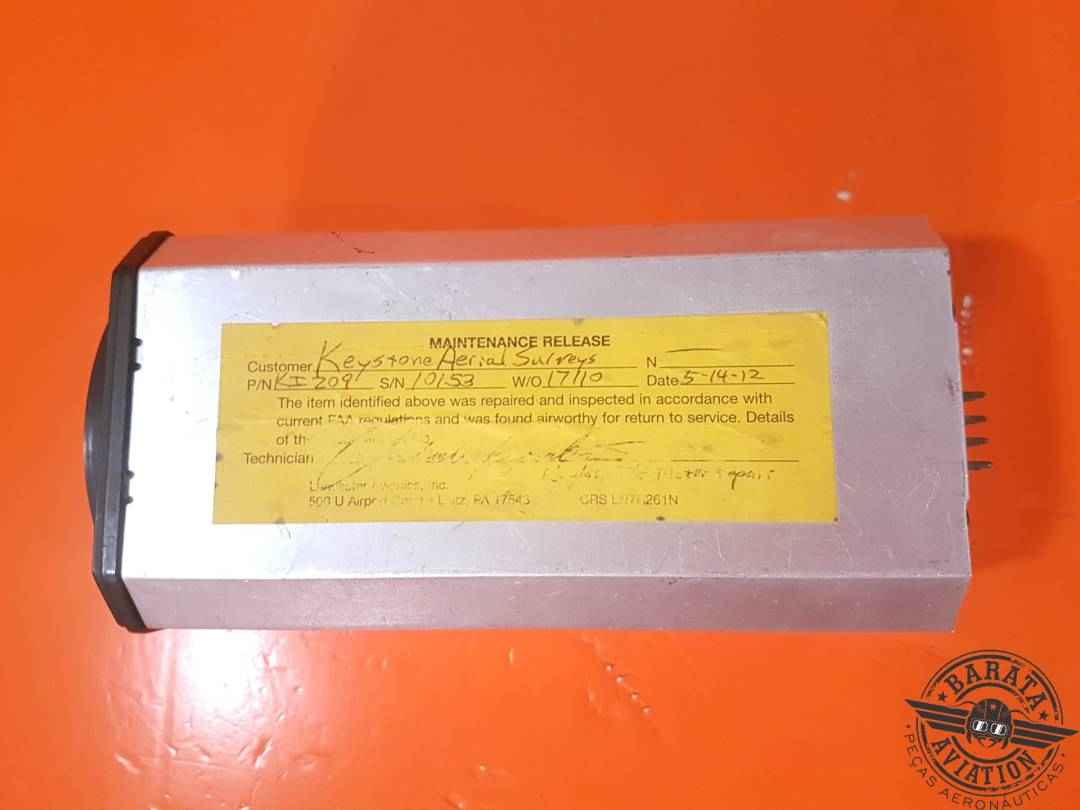 MAINTENANCE RELEASE
Customer Keystone Aerial Surveys N
P/N KI 209 S/N 10153 W/O 17110 Date 5-14-12
The item identified above was repaired and inspected in accordance with
current FAA regulations and was found airworthy for return to service. Details
of th
Technician
Avionics, Inc.
500 Airport Lititz, PA 17543 CRS
BARATA
AVIATION
PEÇAS AERONÁUTICAS